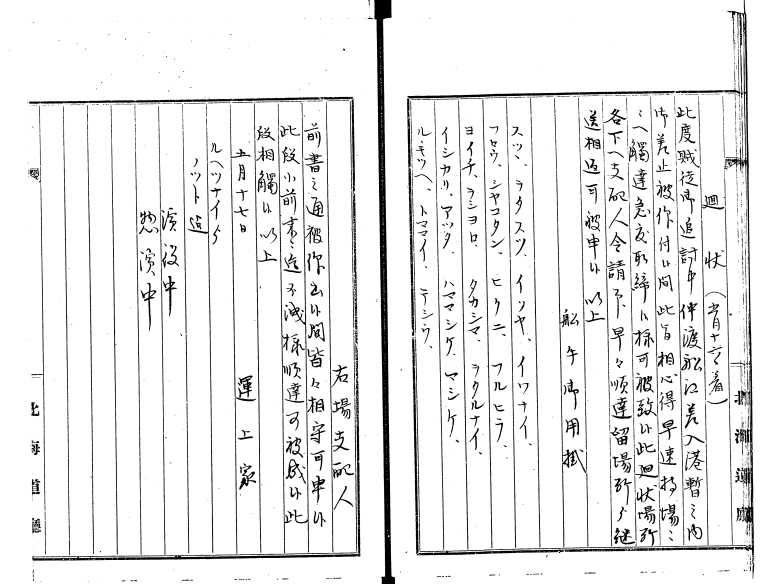 廻状（十月十六日着）
此度賊徒御追討中仲渡船江差入港暫之内
御差止被仰付候間此旨相心得早速持場之
之へ觸達急度取締候様可被致候此廻状場所
各下ヘ支配人令請印早々順達留場所ゟ継
送相返可被申候以上
船手御用掛
スッヽ、ヲタスツ、イソヤ、イワナイ、
フルウ、シヤコタン、ヒクニ、フルヒラ、
ヨイチ、ヲショロ、タカシマ、ヲタルナイ、
イシカリ、アツタ、ハママシケ、マシケ、
ルヽモツヘ、トママイ、テシヲ、
右場支配人
前書之通被仰出候間皆々相守可申候
此段小前末々迄不洩様順達可被成候此
段相觸候以上
十月十七日 運上家
ルヘツナイゟ
ノット迄
濱役中
惣濱中
北海道廳